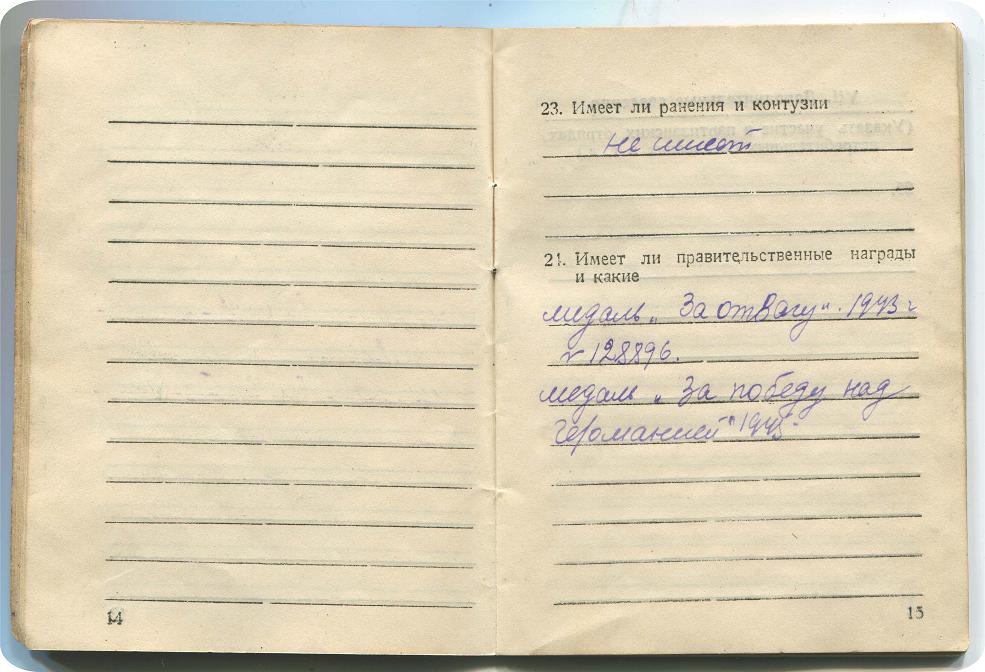 14
23. Имеет ли ранения и контузии
не имеет
21. Имеет ли правительственные награды
и какие
медаль „За отвагу". 1943 г
№ 128896.
медаль „За победу над
Германией" 1945.
15